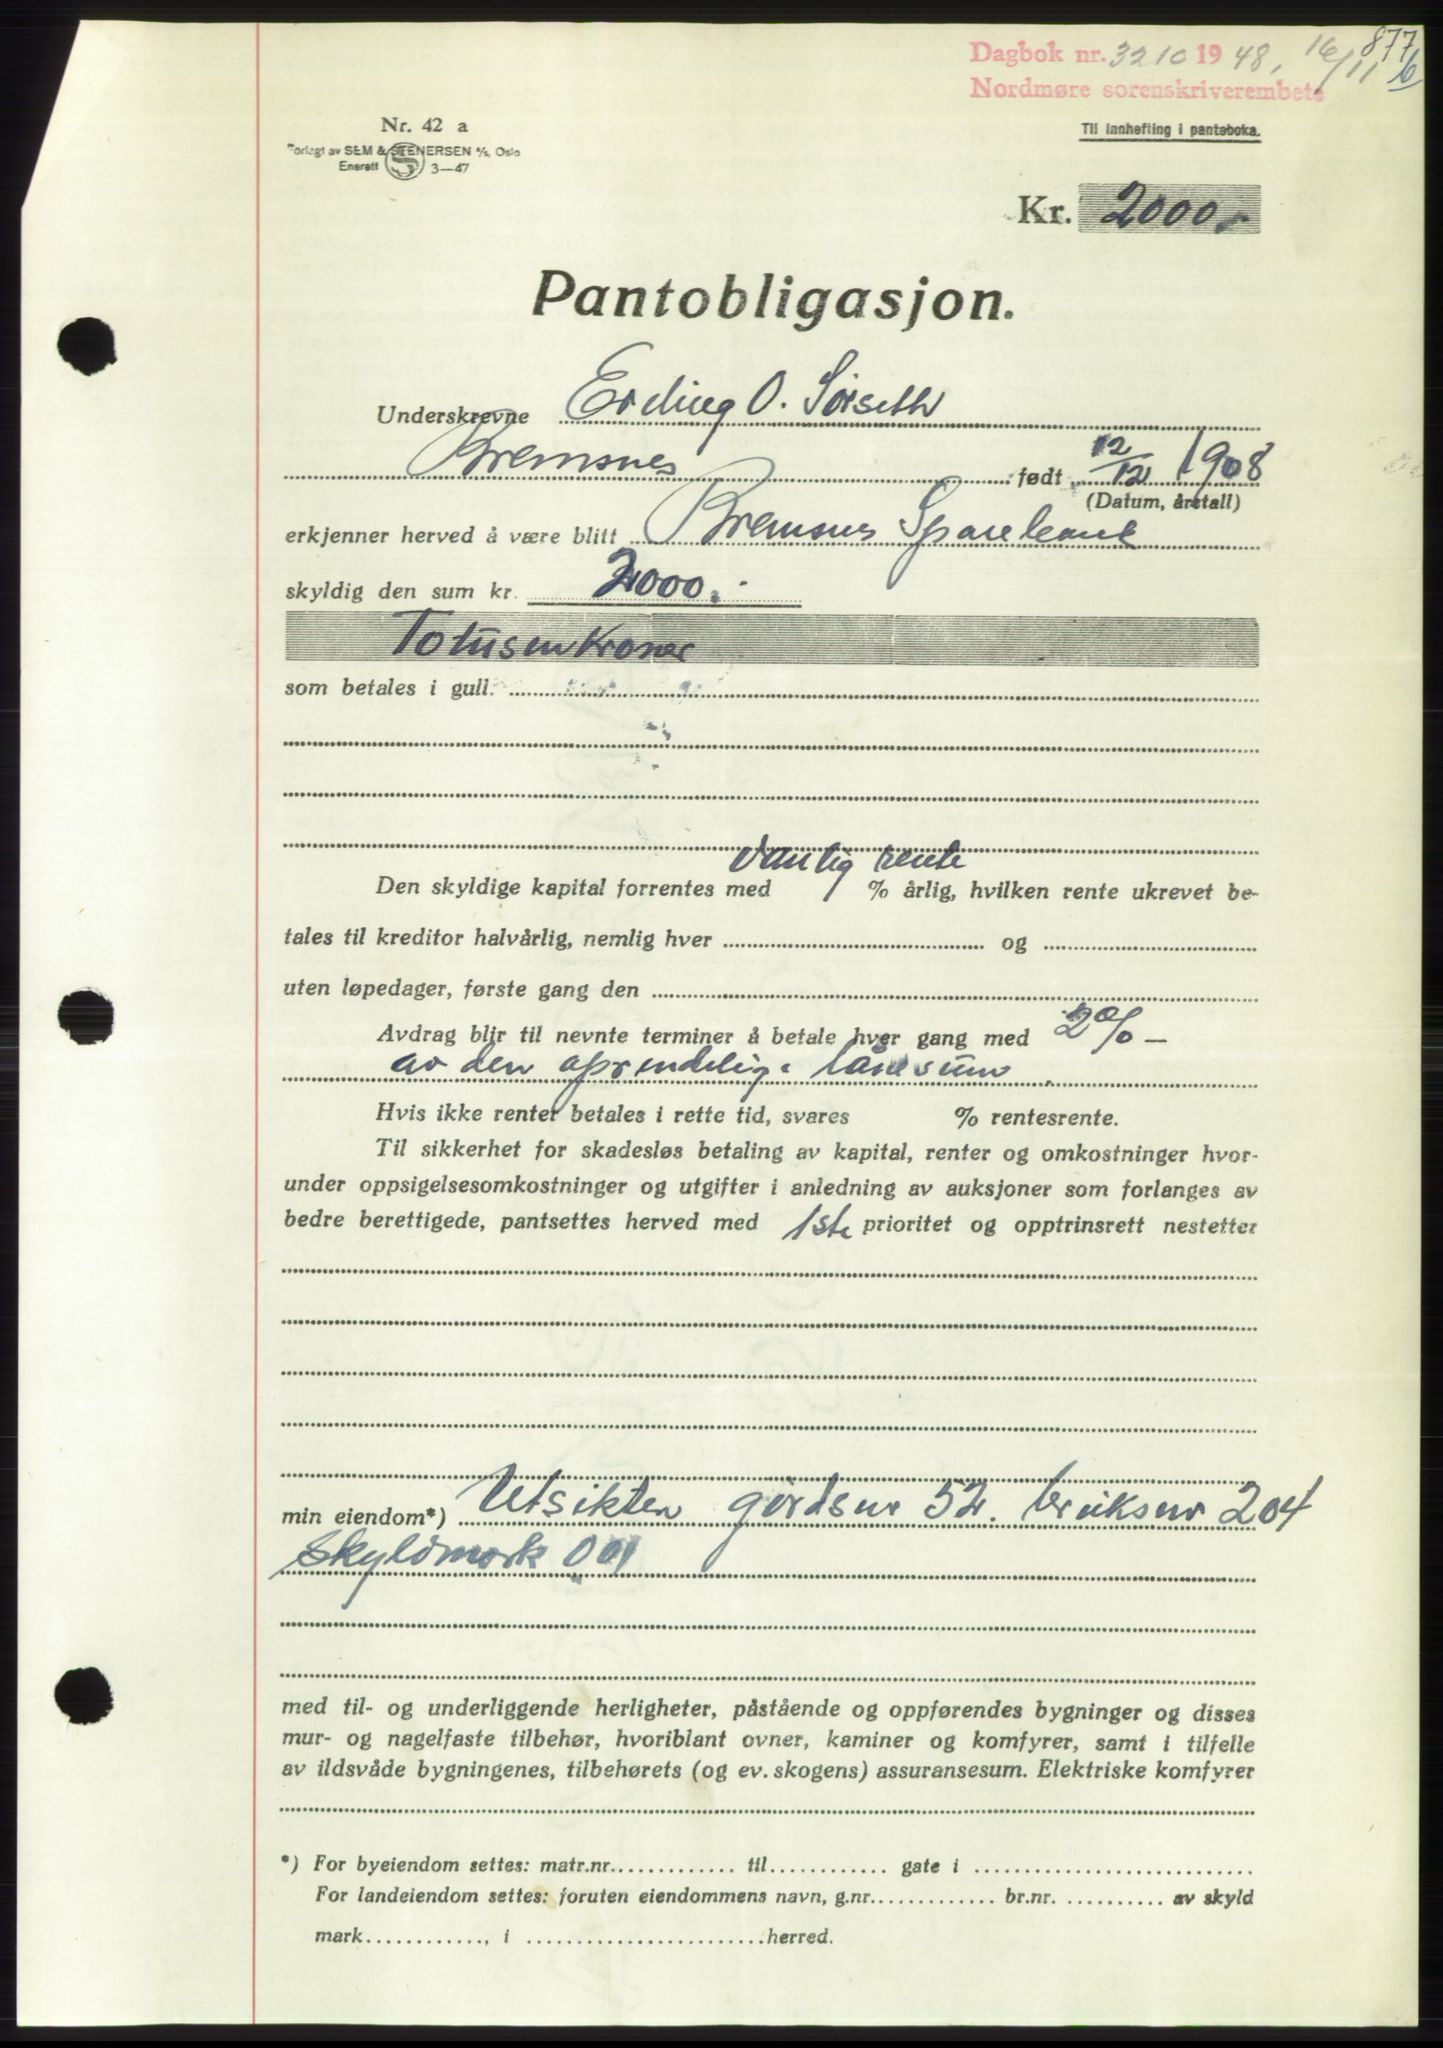 877
b
Dagbok nr. 3210 1948, 16/11
Nordmøre sorenskriverembete
Nr. 42 a
Til innhefting i panteboka.
Forlagt av SEM & STENERSEN A/S, Oslo
Enerett 3—47
Kr. 2000,-
Pantobligasjon.
Underskrevne Erling O. Sørseth
Bremsnes født 12/12 1908
(Datum, årstall)
erkjenner herved å være blitt Bremsnes Sparebank
skyldig den sum kr. 2000.-
Totusen kroner
som betales i gull.
vanlig rente
Den skyldige kapital forrentes med % årlig, hvilken rente ukrevet be-
tales til kreditor halvårlig, nemlig hver og
uten løpedager, første gang den
Avdrag blir til nevnte terminer å betale hver gang med 2% —
av den oprindelige lånesum
Hvis ikke renter betales i rette tid, svares % rentesrente.
Til sikkerhet for skadesløs betaling av kapital, renter og omkostninger hvor-
under oppsigelsesomkostninger og utgifter i anledning av auksjoner som forlanges av
bedre berettigede, pantsettes herved med 1ste prioritet og opptrinsrett nestetter
min eiendom*) Utsikten gårdsnr 52. bruksnr 204
skyldmark 0 01
med til- og underliggende herligheter, påstående og oppførendes bygninger og disses
mur- og nagelfaste tilbehør, hvoriblant ovner, kaminer og komfyrer, samt i tilfelle
av ildsvåde bygningenes, tilbehørets (og ev. skogens) assuransesum. Elektriske komfyrer
*) For byeiendom settes: matr.nr. til gate i
For landeiendom settes: foruten eiendommens navn, g.nr. br.nr. av skyld
mark , i herred.